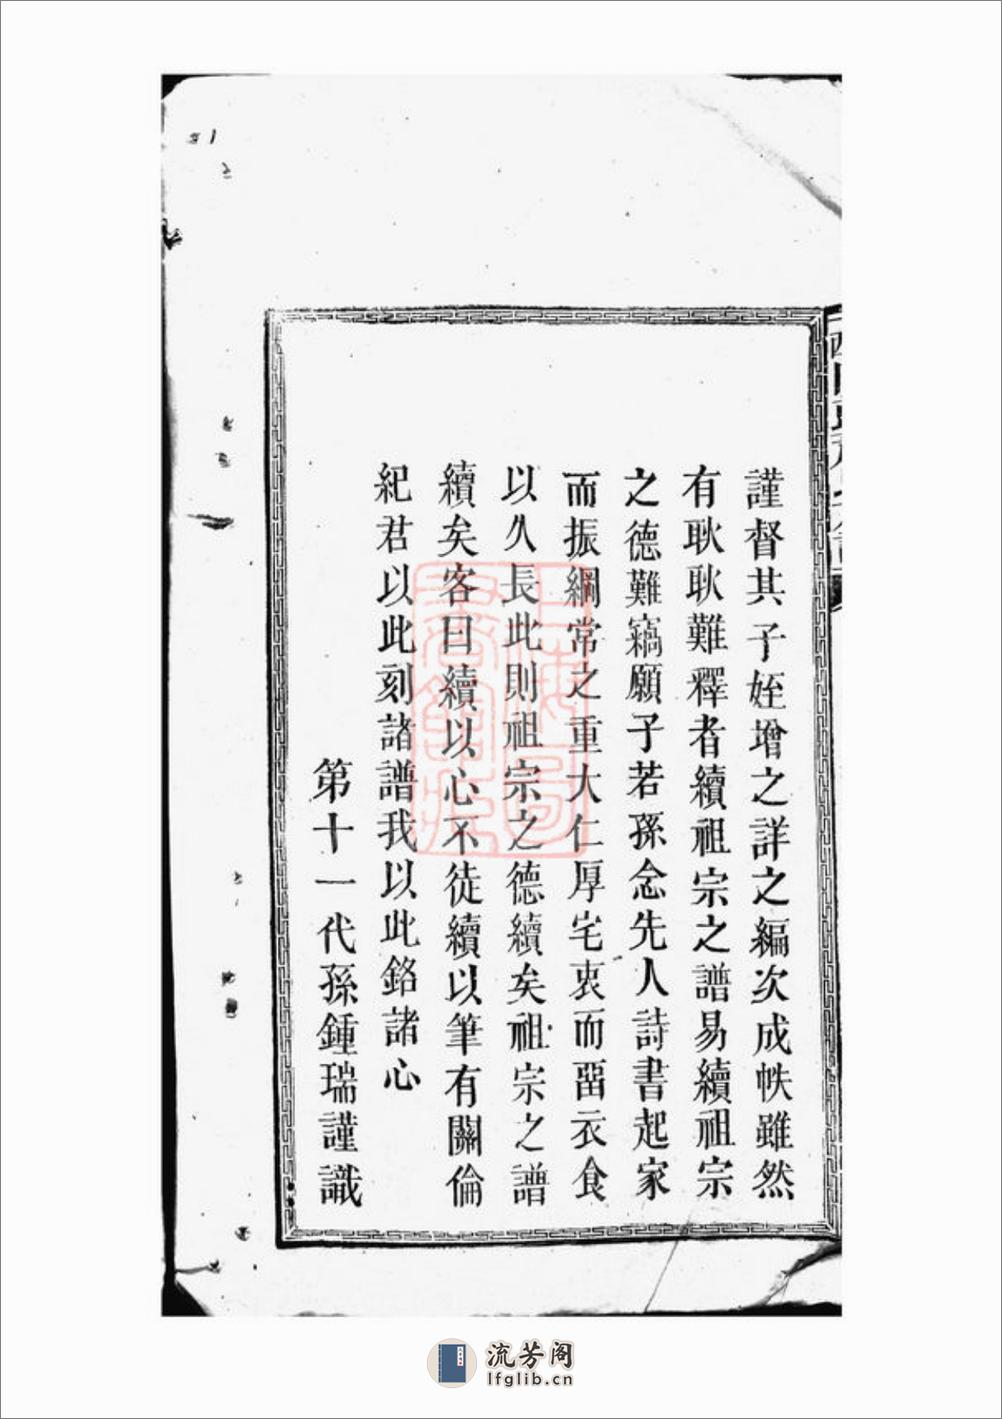 謹督其子姪增之詳之編次成帙雖然
有耿耿難釋者續祖宗之譜易續祖宗
之德難竊願子若孫念先人詩書起家
而振綱常之重大仁厚宅衷而畱衣食
以久長此則祖宗之德續矣祖宗之譜
續矣客曰續以心不徒續以筆有關倫
紀君以此刻諸譜我以此銘諸心
第十一代孫鍾瑞謹識
流芳阁
lfglib.cn